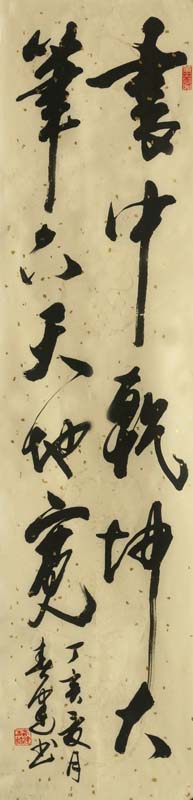 書中乾坤大
筆下天地寬
丁亥夏月
春建书